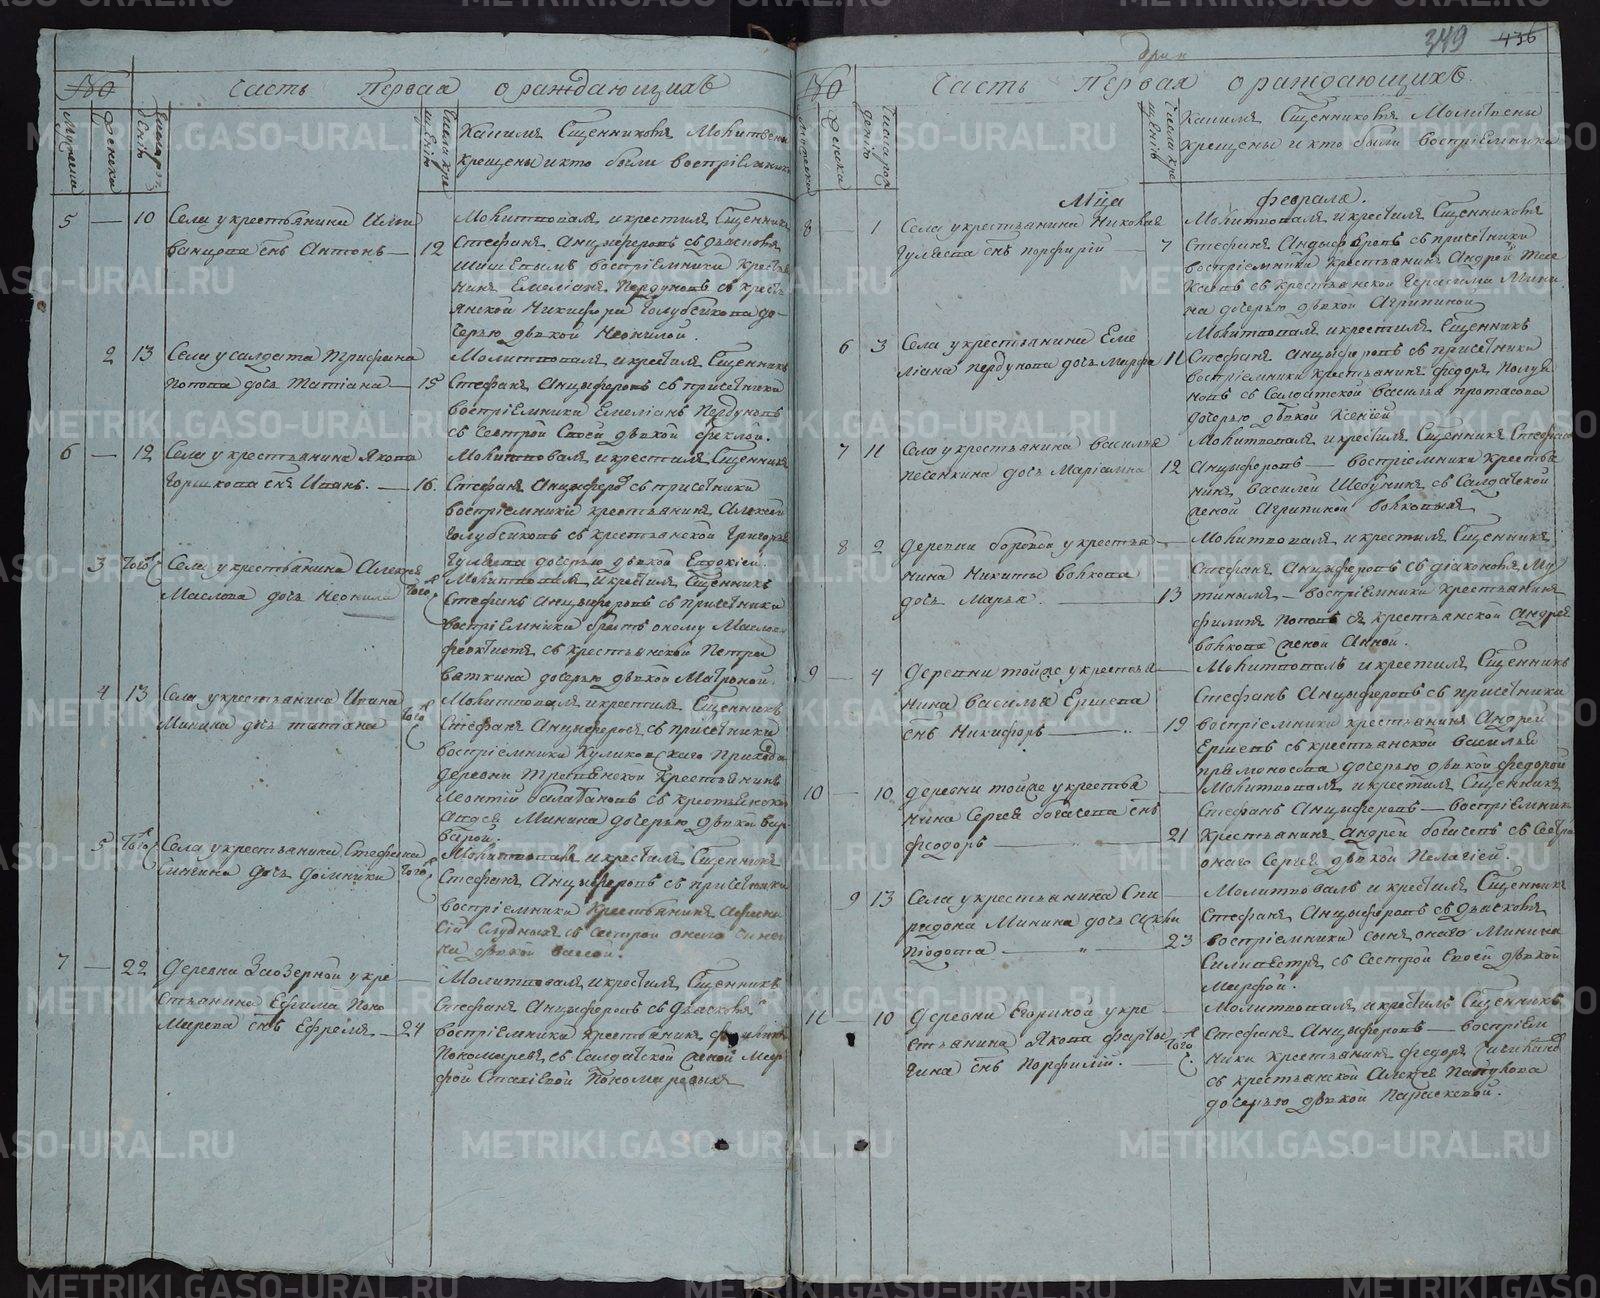 349 436
№ Часть Первая о раждающихъ
Мужеска
Женска
Числа рож
денiя
Числа кре
щенiя
Кѣмъ Священникомъ Молитвены
крещены и кто были воспрiемники
5 — 10 Села у крестьянина Ильи
Ванцова снъ Антонъ — 12
Молитвовалъ и крестилъ Сщенникъ
Стефанъ Анцыферовъ съ дьякомъ
Шишевымъ воспрiемники крестья
нинъ Емелiанъ Пердуновъ съ кресть
янской Никифора Голубчикова до
черью дѣвкой Неонилой.
2 13 Села у салдата Трифана
Попова дочь Татiана — 15
Молитвовалъ и крестилъ Сщенникъ
Стефанъ Анцыферовъ съ причетники
воспрiемники Емелiанъ Пердуновъ
съ Сестрой Своей дѣвкой Феклой.
6 — 12 Села у крестьянина Якова
Горшкова снъ Иванъ. — 16
Молитвовалъ и крестилъ Сщенникъ
Стефанъ Анцыферовъ съ причетники
воспрiемники крестьянинъ Алексей
Голубчиковъ съ крестьянской Григорья
Гуляева дочерью дѣвкой Евдокiей.
3 Того ж Села у крестьянина Алексея
Маслова дочь Неонила Того ж
Молитвовалъ и крестилъ Сщенникъ
Стефанъ Анцыферовъ съ причетники
воспрiемники братъ оному Маслову
Феоктистъ съ крестьянской Петра
Вяткина дочерью дѣвкой Матроной.
4 13 Села у крестьянина Ивана
Минина дочь татiана Того ж
Молитвовалъ и крестилъ Сщенникъ
Стефанъ Анцыферовъ съ причетники
воспрiемники Куликовскаго Прихода
деревни Крестьянинъ
Леонтiй балабановъ съ крестьянской
Минина дочерью дѣвкой Вар
варой.
5 Того ж Села у крестьянина Стефана
Синцина дочь Домники Того ж
Молитвовалъ и крестилъ Сщенникъ
Стефанъ Анцыферовъ съ причетники
воспрiемники крестьянинъ Афана
сiй съ сестрой онаго
дѣвкой
7 — 22 Деревни Заозерной у кре
стьянина Ефима Поно
марева снъ Ефремъ — 24
Молитвовалъ и крестилъ Сщенникъ
Стефанъ Анцыферовъ съ Дьякомъ
воспрiемники крестьянинъ
Пономаревъ съ Салдатской женой Мар
фой Пономаревыхъ
№ Часть Первая о раждающихъ.
Мужеска
Женска
Числа рож
денiя
Числа кре
щенiя
Кѣмъ Священникомъ Молитвены
крещены и кто были воспрiемники
Мца февраля.
8 — 1 Села у крестьянина Николая
Гуляева снъ порфирiй — 7
Молитвовалъ и крестилъ Сщенникъ
Стефанъ Анцыферовъ съ причетники
воспрiемники крестьянинъ Андрей
съ крестьянской Герасима Мини
на дочерью дѣвкой Агрипиной
6 3 Села у крестьянина Еме
лiана Пердунова дочь Марфа 11
Молитвовалъ и крестилъ Сщенникъ
Стефанъ Анцыферовъ съ причетники
воспрiемники крестьянинъ Федоръ Полуя
новъ съ Салдатской Василья протасова
дочерью дѣвкой Ксенiей
7 11 Села у крестьянина Василья
Песенкина дочь Марiамна 12
Молитвовалъ и крестилъ Сщенникъ Стефанъ
Анцыферовъ — воспрiемники крестья
нинъ Василей съ Салдатской
женой Агрипиной Волковыхъ
8 2 Деревни боровой у крестья —
нина Никиты Волкова
дочь Марья — 13
Молитвовалъ и крестилъ Сщенникъ
Стефанъ Анцыферовъ съ дiакономъ Му
тинымъ — воспрiемники крестьянинъ
Филипъ Поповъ съ крестьянской Андрея
Волкова женой Анной.
9 — 4 Деревни тойже у крестья —
нина Василья Ершева
снъ Никифоръ — 19
Молитвовалъ и крестилъ Сщенникъ
Стефанъ Анцыферовъ съ причетники
воспрiемники крестьянинъ Андрей
Ершевъ съ крестьянской Василья
прямоносова дочерью дѣвкой федорой
10 — 10 деревни тойже у крестья —
нина Сергея богасева снъ
феодоръ — 21
Молитвовалъ и крестилъ Сщенникъ
Стефанъ Анцыферовъ — воспрiемники
крестьянинъ Андрей богасевъ съ сестрой
онаго Сергея дѣвкой Пелагiей.
9 13 Села у крестьянина Спи
ридона Минина дочь
23
Молитвовалъ и крестилъ Сщенникъ
Стефанъ Анцыферовъ съ Дьякомъ
воспрiемники сынъ онаго Минина
Силивестръ съ Сестрой своей дѣвкой
Марфой.
11 — 10 Деревни у кре
стьянина Якова
снъ Порфилiй. — Того ж
Молитвовалъ и крестилъ Сщенникъ
Стефанъ Анцыферовъ — воспрiем
ники крестьянинъ Федоръ
съ крестьянской Алексея Панкова
дочерью дѣвкой Параскевой.
METRIKI.GASO-URAL.RU